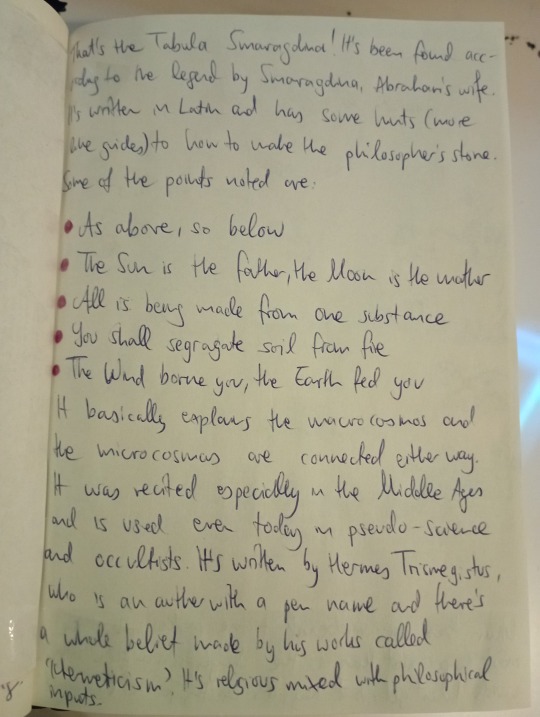 That's the Tabula Smaragdina! It's been found acc-
ording to the legend by Smaragdina, Abraham's wife.
It's written in Latin and has some hints (more
like guides) to how to make the philosopher's stone.
Some of the points noted are:
• As above, so below
• The Sun is the father, the Moon is the mother
• All is being made from one substance
• You shall segragate soil from fire
• The Wind borne you, the Earth fed you
It basically explains the macrocosmos and
the microcosmos are connected either way.
It was recited especially in the Middle Ages
and is used even today in pseudo-science
and occultists. It's written by Hermes Trismegistus,
who is an author with a pen name and there's
a whole belief made by his works called
"Hermeticism". It's religious mixed with philosophical
inputs.